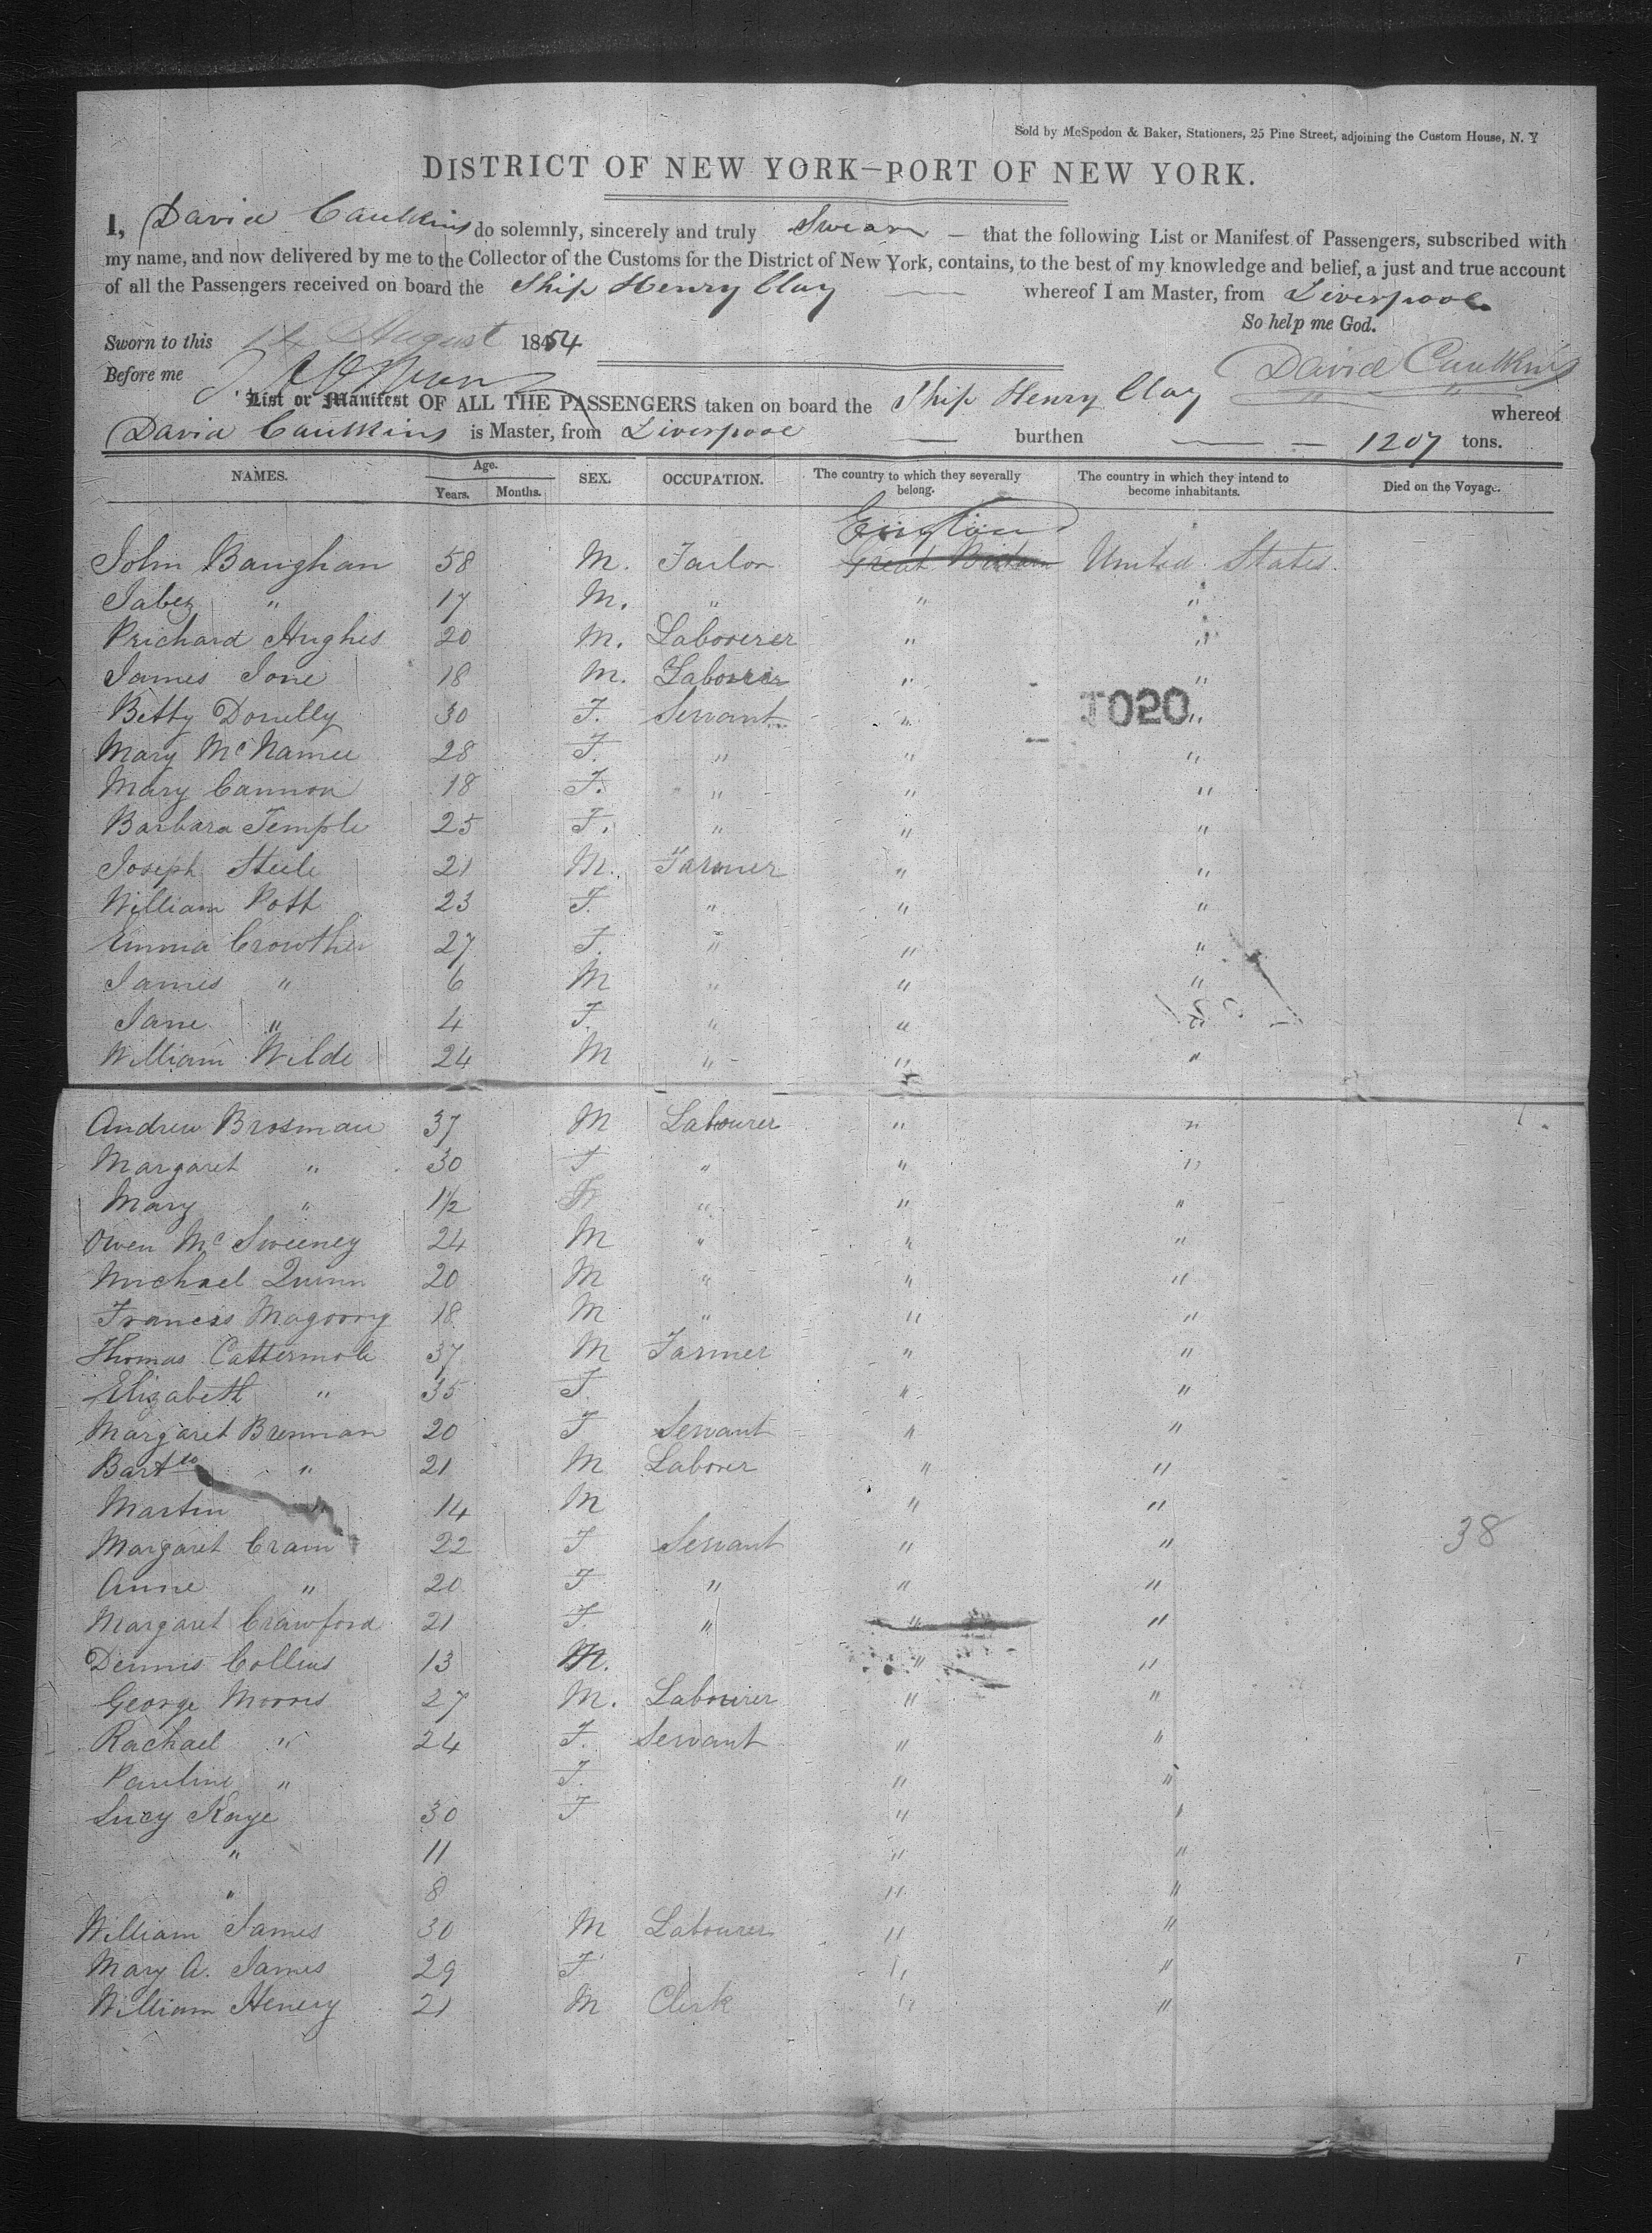 Sold by McSpedon & Baker, Stationers, 25 Pine Street, adjoining the Custom House, N. Y
DISTRICT OF NEW YORK—PORT OF NEW YORK.
I, David Caulkins do solemnly, sincerely and truly Swear — that the following List or Manifest of Passengers, subscribed with
my name, and now delivered by me to the Collector of the Customs for the District of New York, contains, to the best of my knowledge and belief, a just and true account
of all the Passengers received on board the Ship Henry Clay whereof I am Master, from Liverpool
So help me God.
Sworn to this 14 August 1854
David Caulkins
Before me
List or Manifest OF ALL THE PASSENGERS taken on board the Ship Henry Clay whereof
David Caulkins is Master, from Liverpool burthen 1207 tons.
NAMES. Age. Years. Months. SEX. OCCUPATION. The country to which they severally belong. The country in which they intend to become inhabitants. Died on the Voyage.
England
John Baughan 58 M. Tailor Great Britain United States.
Jabez " 17 M. " " "
Prichard Hughes 20 M. Laborerer " "
James Jone 18 M. Labourer " "
Betty Donelly 30 F. Servant " "
1020
Mary McNamee 28 F. " " "
Mary Cannon 18 F. " " "
Barbara Temple 25 F. " " "
Joseph Steele 21 M. Farmer " "
William Pott 23 F. " " "
Emma Crowther 27 F. " " "
James " 6 M " " "
Jane " 4 F. " " "
William Wilde 24 M " " "
Andrew Brosman 37 M Labourer " "
Margaret " 30 F " " "
Mary " 1½ F " " "
Owen McSweeney 24 M " " "
Michael Quinn 20 M " " "
Francis Magoory 18 M " " "
Thomas Cattermole 37 M Farmer " "
Elizabeth " 35 F. " "
Margaret Brennan 20 F Servant " "
Bartlo " 21 M Laborer " "
Martin " 14 M " "
Margaret Cram 22 F Servant " "
38
Anne " 20 F " " "
Margaret Crawford 21 F. " " "
Dennis Collins 13 M. " "
George Morris 27 M. Labourer " "
Rachael " 24 F. Servant " "
Pauline " F. " "
Lucy Kaye 30 F " "
" 11 " "
" 8 " "
William James 30 M Labourer " "
Mary A. James 29 F " "
William Henery 21 M Clerk " "